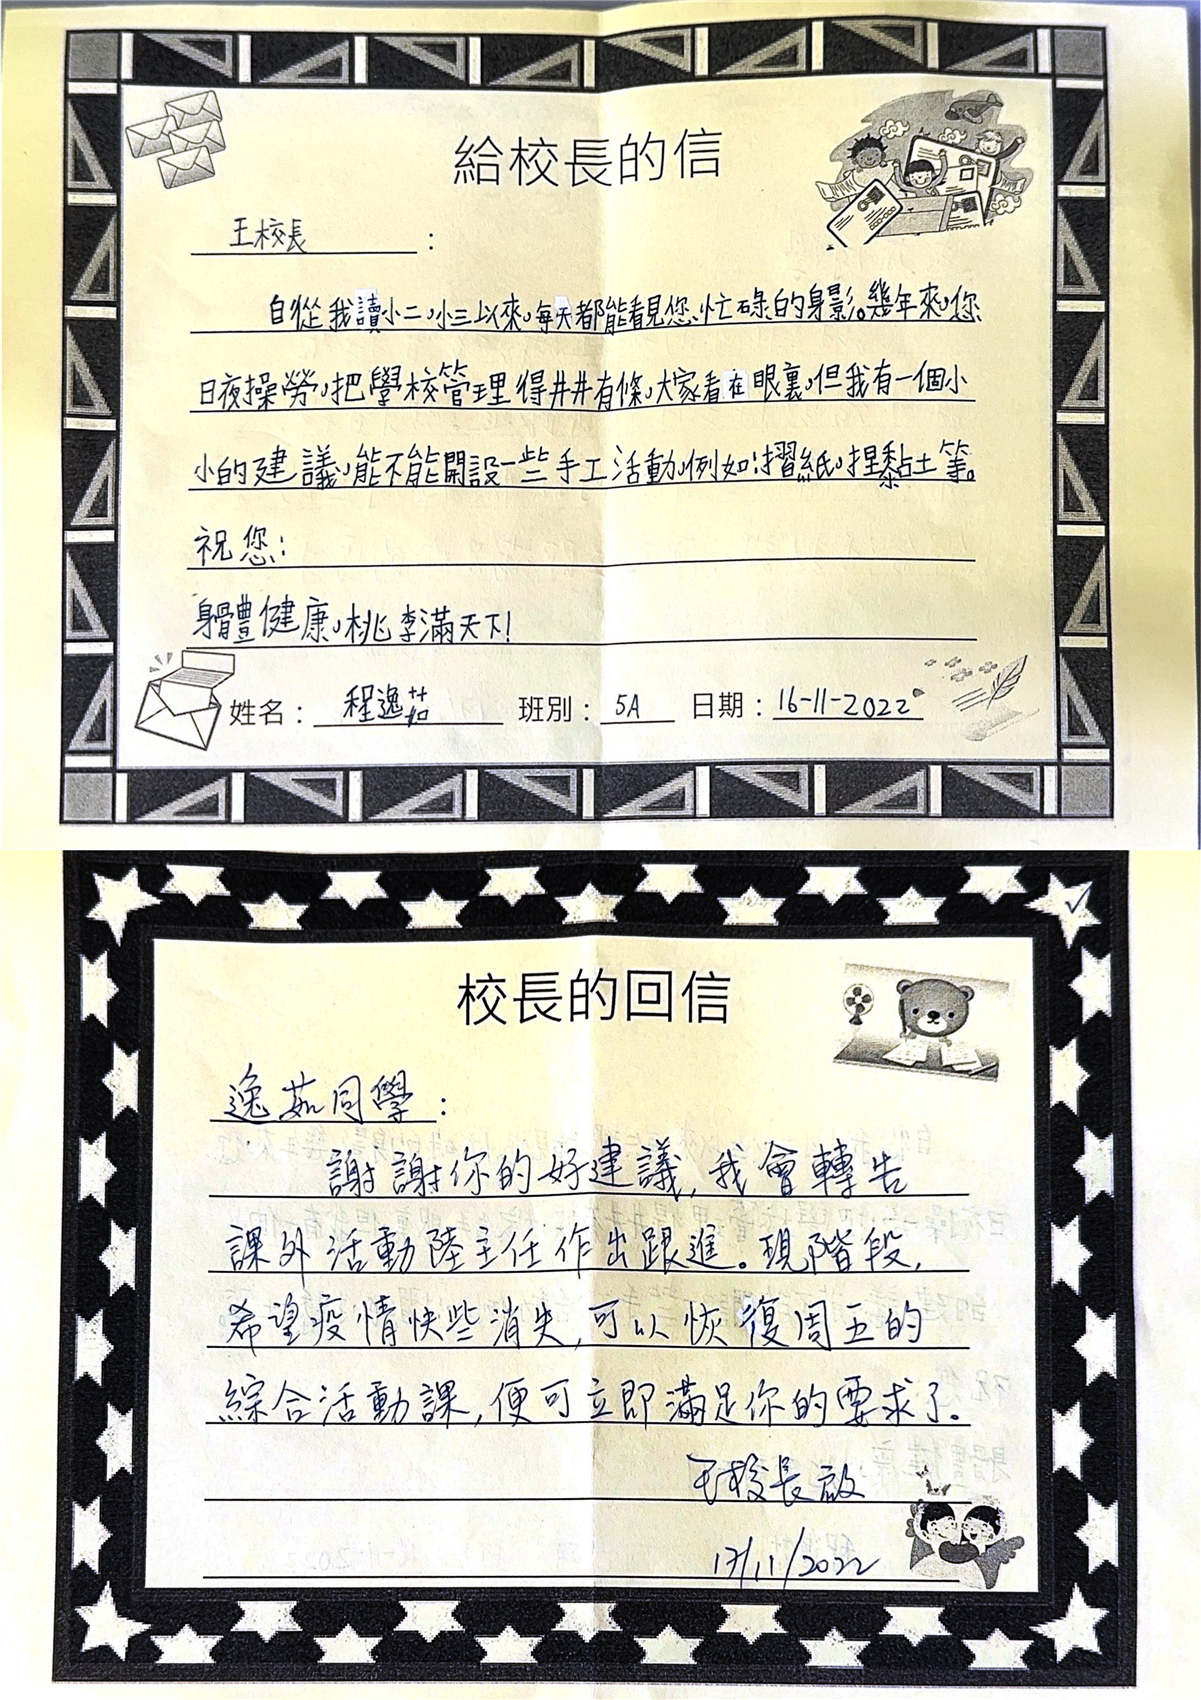 給校長的信
王校長：
自從我讀小二，小三以來，每天都能看見您忙碌的身影。幾年來，您
日夜操勞，把學校管理得井井有條，大家看在眼裏，但我有一個小
小的建議，能不能開設一些手工活動，例如：摺紙，捏黏土等。
祝您：
身體健康，桃李滿天下！
姓名：程逸茹 班別：5A 日期：16-11-2022
校長的回信
逸茹同學：
謝謝你的好建議，我會轉告
課外活動陸主任作出跟進。現階段，
希望疫情快些消失，可以恢復周五的
綜合活動課，便可立即滿足你的要求了。
王校長啟
17/11/2022